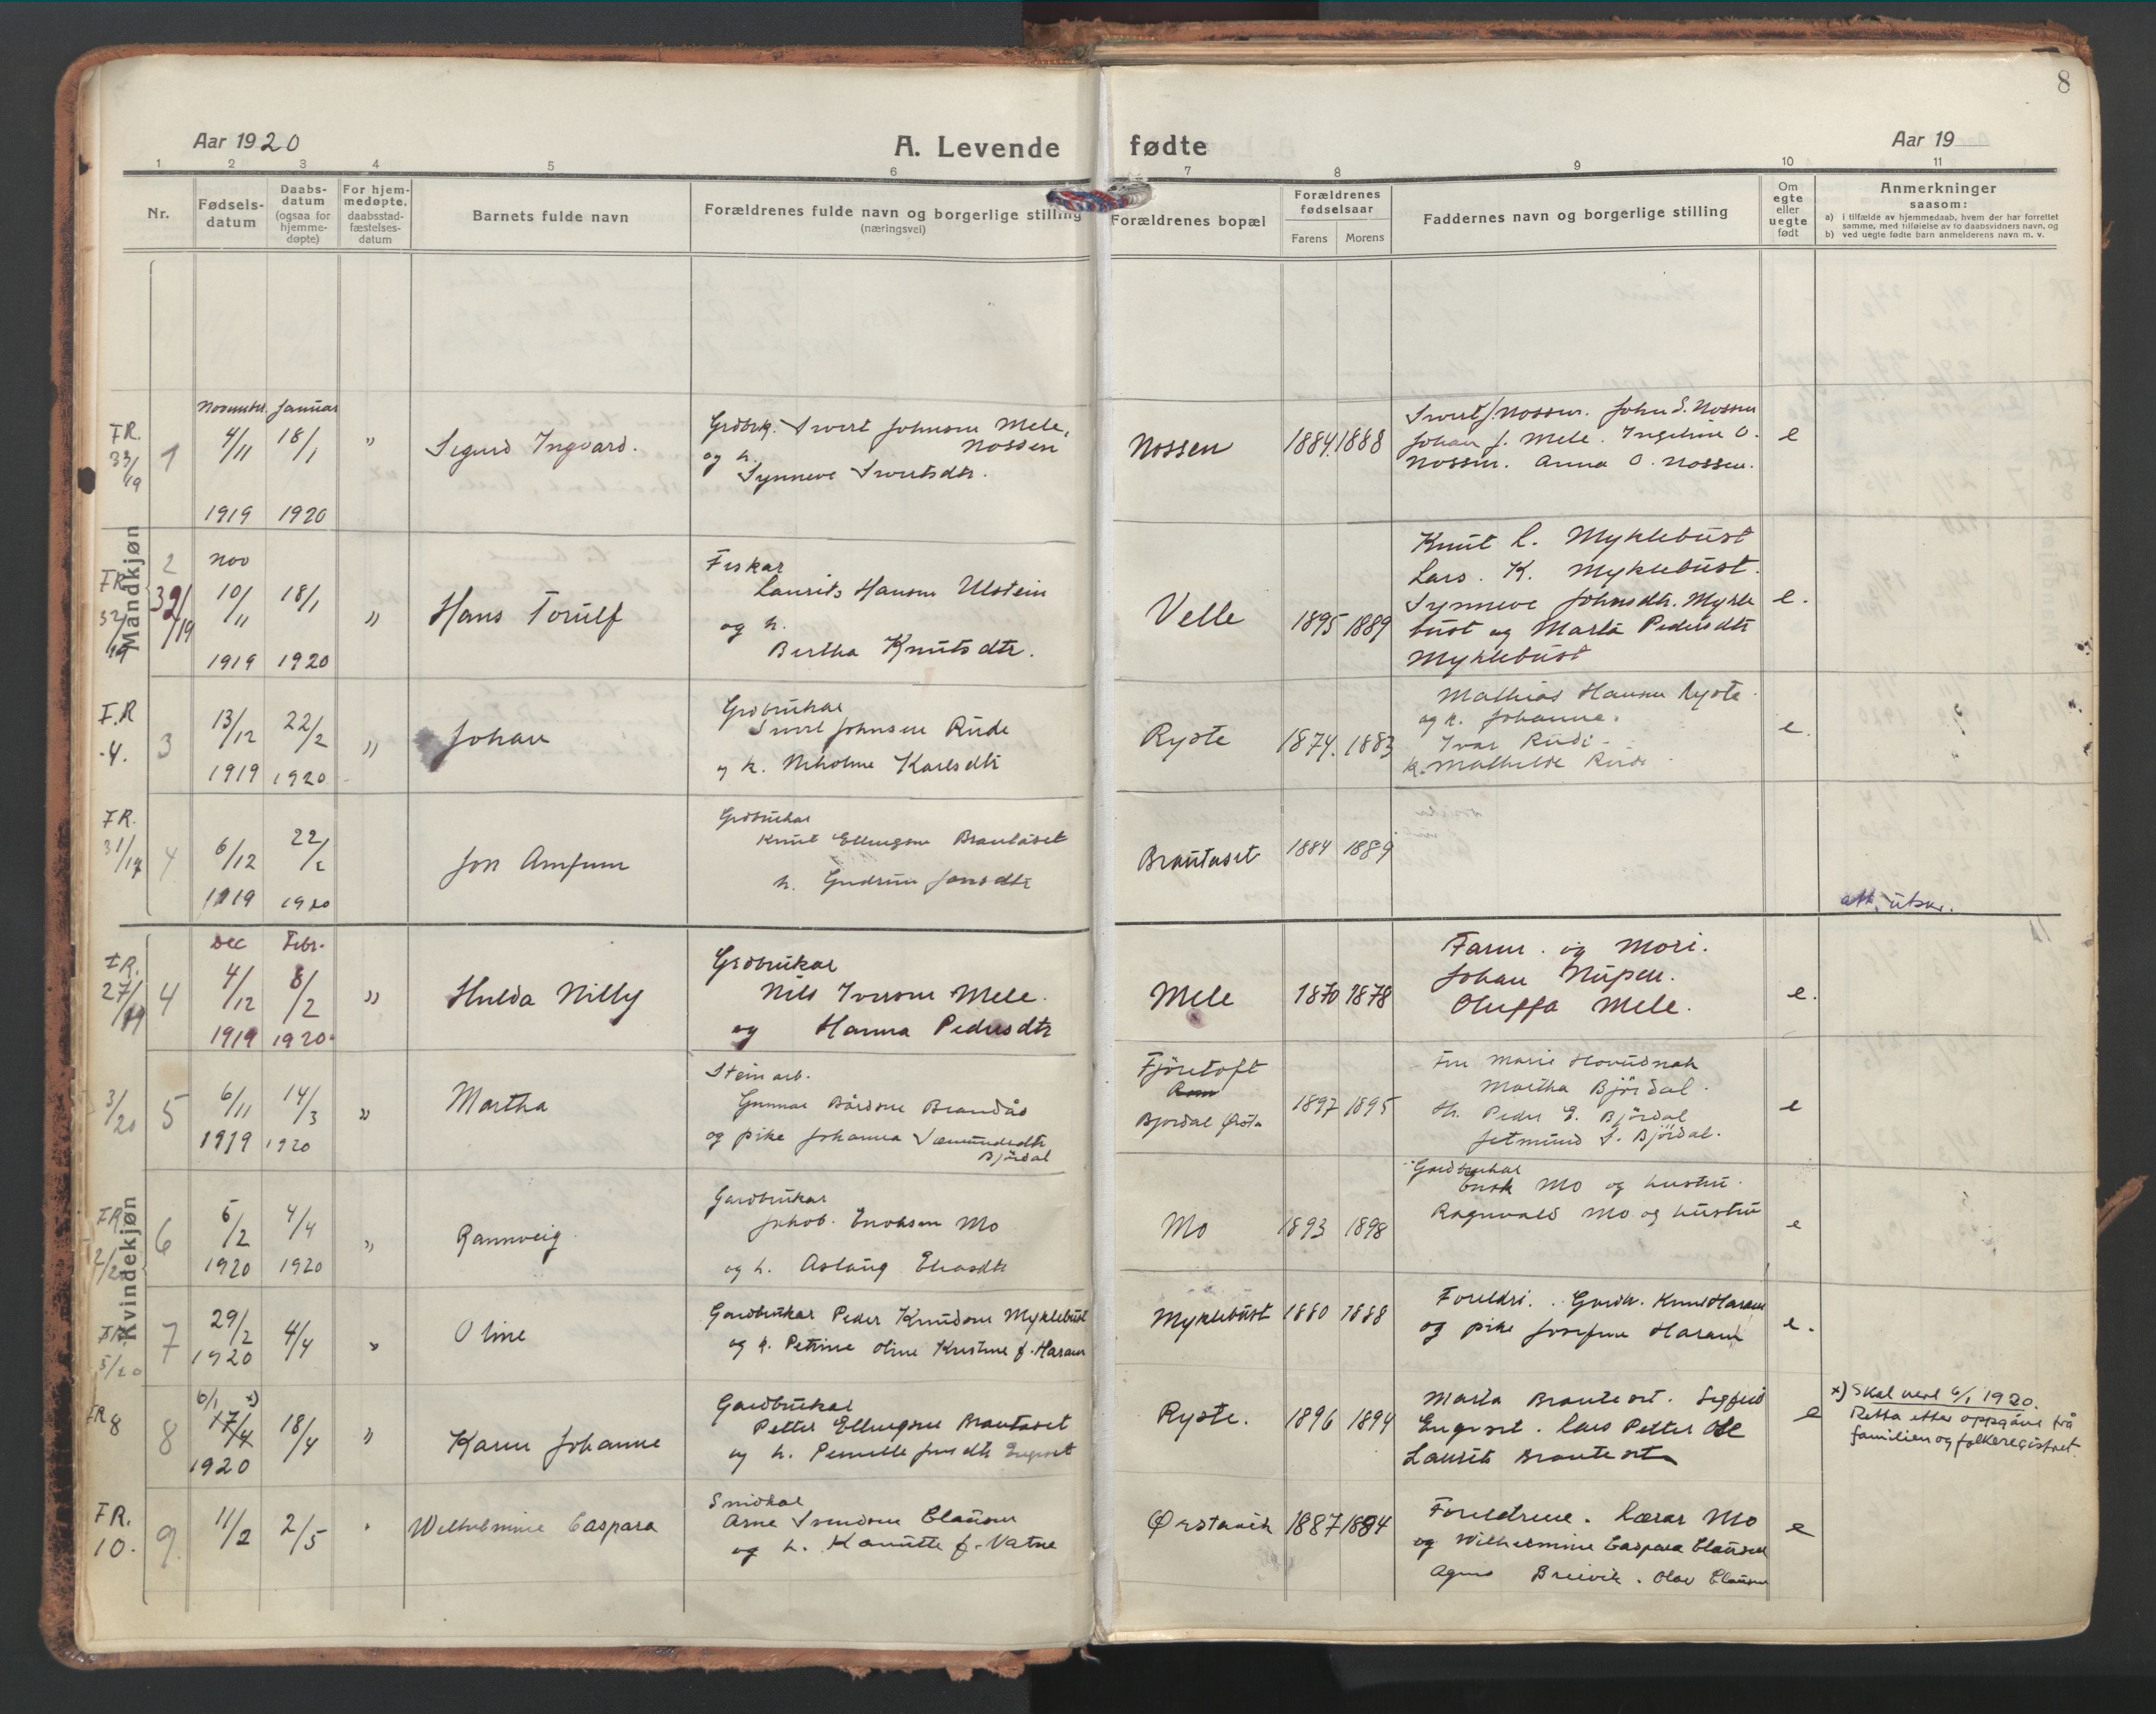 8
Aar 1920
A. Levende fødte
Aar 19
1 2 3 4 5 6 7 8 9 10 11
Nr.
Fødsels-
datum
Daabs-
datum
(ogsaa for
hjemme-
døpte)
For hjem-
medøpte,
daabsstad-
fæstelses-
datum
Barnets fulde navn
Forældrenes fulde navn og borgerlige stilling
(næringsvei)
Forældrenes bopæl
Forældrenes
fødselsaar
Farens Morens
Faddernes navn og borgerlige stilling
Om
egte
eller
uegte
født
Anmerkninger
saasom:
a) i tilfælde av hjemmedaab, hvem der har forrettet
samme, med tilføielse av to daabsvidners navn, og
b) ved uegte fødte barn anmelderens navn m. v.
Mandkjøn
FR.
33/19
1
November Januar
4/11 18/1
1919 1920
"
Sigurd Ingvard.
Grdbrk. Sivert Johnsen Mele,
Nossen
og h.
Synneve Sivertsdtr.
Nossen
1884. 1888
Sivert J. Nossen. John S. Nossen
Johan J. Mele. Ingeline O.
Nossen. Anna O. Nossen.
e
FR
32/19
2
32/19
Nov
10/11 18/1
1919 1920
"
Hans Torulf
Fiskar
Laurits Hansen Ulstein
og h.
Bertha Knutsdtr.
Velle
1895 1889
Knut L. Myklebust
Lars. K. Myklebust.
Synneve Johnsdtr. Mykle
bust og Marta Pedersdtr
Myklebust
e.
F.R
4.
3
13/12 22/2
1919 1920
"
Johan
Grdbrukar
Sivert Johnsen Rude
og h. Nikoline Karlsdtr
Ryste
1874. 1883
Mathias Hansen Ryste
og h. Johanne.
Ivar Rudi
h. Mathilde Rude
e.
FR.
31/19
4
6/12 22/2
1919 1920
Jon Arnfinn
Grdbrukar
Knut Ellingsen Brautaset
h. Gudrun Jonsdtr
Brautaset
1884 1889
att. utskr.
Kvindekjøn
FR.
27/19
4
Dec Febr.
4/12 8/2
1919 1920.
"
Hulda Nilly
Grdbrukar
Nils Iversen Mele.
og Hanna Pedersdtr
Mele
1870 1878
Faren og Mori.
Johan Nupen.
Oluffa Mele.
e.
3/20
5
6/11 14/3
1919 1920
"
Martha
Steinarb.
Gunnar Bårdsen Brandås
og pike Johanna Sæmundsdtr
Bjørdal
Fjörtoft
Bjordal Ørsta
1897 1895
Fru Marie Hovudnak
Martha Bjørdal.
Hr. Peder E. Bjørdal
Jetmund S. Bjørdal.
e
FR
2/20
6
5/2 4/4
1920 1920
"
Rannveig
Gardbrukar
Jakob Enoksen Mo
og h. Aslaug Eliasdtr
Mo
1893 1898
Gardbrukar
Enok Mo og hustru.
Ragnvald Mo og hustru
e
FR
5/20
7
29/2 4/4
1920
"
Oline
Gardbrukar Peder Knudsen Myklebust
og h. Petrine Oline Kristine f. Haram
Myklebust
1880 1888
Foreldri. Gardbr. Knut Haram
og pike Josefine Haram
e.
FR 8
8
6/1 x)
17/4 18/4
1920
"
Karen Johanne
Gardbrukar
Petter Ellingsen Brautaset
og h. Pernille Jensdtr Engeset
Ryste.
1896 1894
Marta Brauteset. Sigfrid
Engeset. Lars Petter Ose
Laurits Brauteset
e
x) Skal vere 6/1 1920.
Retta etter oppgåve frå
familien og folkeregistret.
FR.
10.
9.
11/2 2/5
"
Wilhelmine Caspara
Snidkar
Arne Svendsen Clausen
og h. Kanutte f. Vatne
Ørstavik
1887 1884
Foreldrene. Lærar Mo
og Wilhelmine Caspara Clausen
Agnes Breivik. Olav Clausen
e